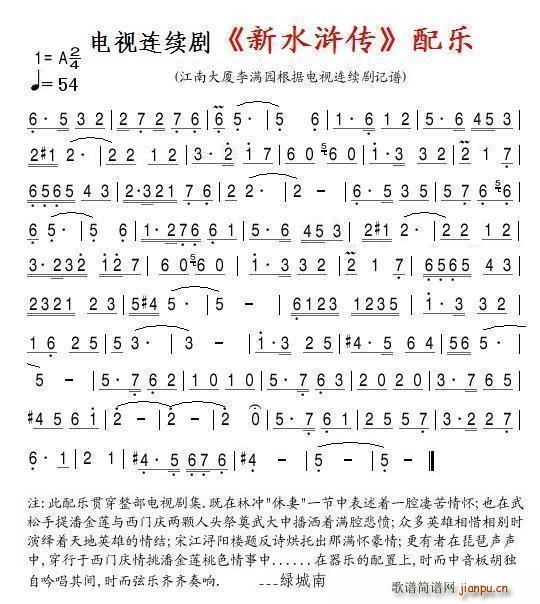 电视连续剧《新水浒传》配乐
1=A 2/4
♩=54
(江南大厦李满园根据电视连续剧记谱)
6· 5 3 2 | 2 7 2 7 6 | 6 5· | 5· | 1· 6 1 2 | 5· 6 4 5 3 |
2 #1 2· | 2· 1 2 | 3· 2 1 7 | 6 0 5 6 0 | 1· 3 3 | 2 1 7 |
6 5 6 5 4 3 | 2·3 2 1 7 6 | 2 2· | 2 - | 6· 5 3 5 | 5 7 6 5 6 |
6 5· | 5· 6 | 1·2 7 6 6 1 | 5· 6 4 5 3 | 2 #1 2· | 2· 1 2 |
3·2 3 2 1 2 7 | 6 0 5 6 0 | 1· 3 3 | 2 1 7 | 6 5 6 5 4 5 |
2 3 2 1 | 5 #4 5· | 5 - | 6 1 2 3 1 2 3 5 | 2· 3 |
1 6 2 1 | 5· | 5· 3 2 3 | 5· 1 | 3· 5 2 4 | 2 5 6 5· |
5 - | 5· 7 6 2 | 1 0 1 0 | 5· 7 6 2 | 2 0 2 0 | 3 5 6 7 |
#4 5 6 1 | 2 - | 2 - | 2 0 | 5· 7 6 1 | 2 5 5 7 | 3· 2 |
6· 1 | 2 2· | #4·5 6 7 6 | #4 5· | 5 - ‖
注: 此配乐贯穿整部电视剧集. 既在林冲"休妻"一节中表述着一腔凄苦情怀; 也在武
松手提潘金莲与西门庆两颗人头祭奠武大中播洒着满腔悲愤; 众多英雄相惜相别时
演绎着天地英雄的情结; 宋江浔阳楼题反诗烘托出那满怀豪情; 更有者在琵琶声声
中, 穿行于西门庆情挑潘金莲桃色情事中......在器乐的配置上, 时而中音板胡独
自吟唱其间, 时而弦乐齐齐奏响. ---绿城南
歌谱简谱网
jianpu.cn